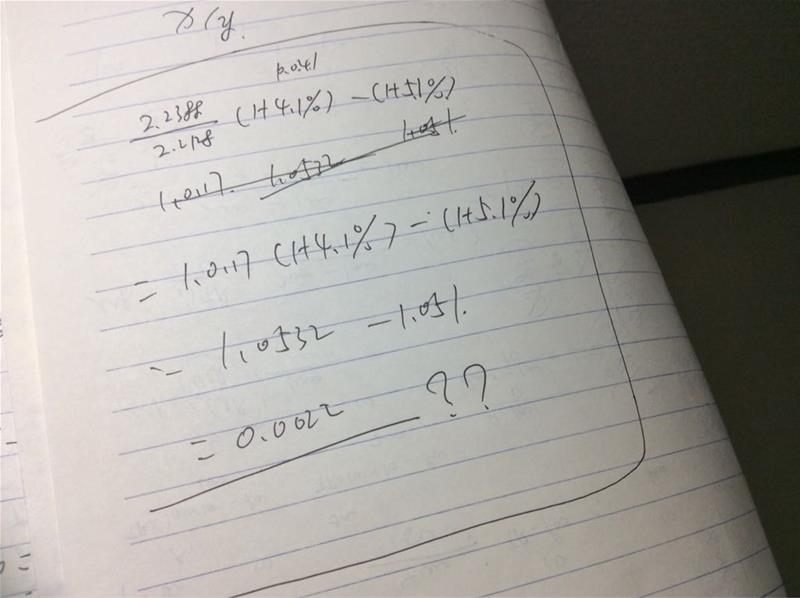 x/y.
1.041
2.2388
2.2128
(1+4.1%) - (1+5.1%)
1.0117 1.0532 1.051.
= 1.0117 (1+4.1%) - (1+5.1%)
= 1.0532 - 1.051.
= 0.0022 ??